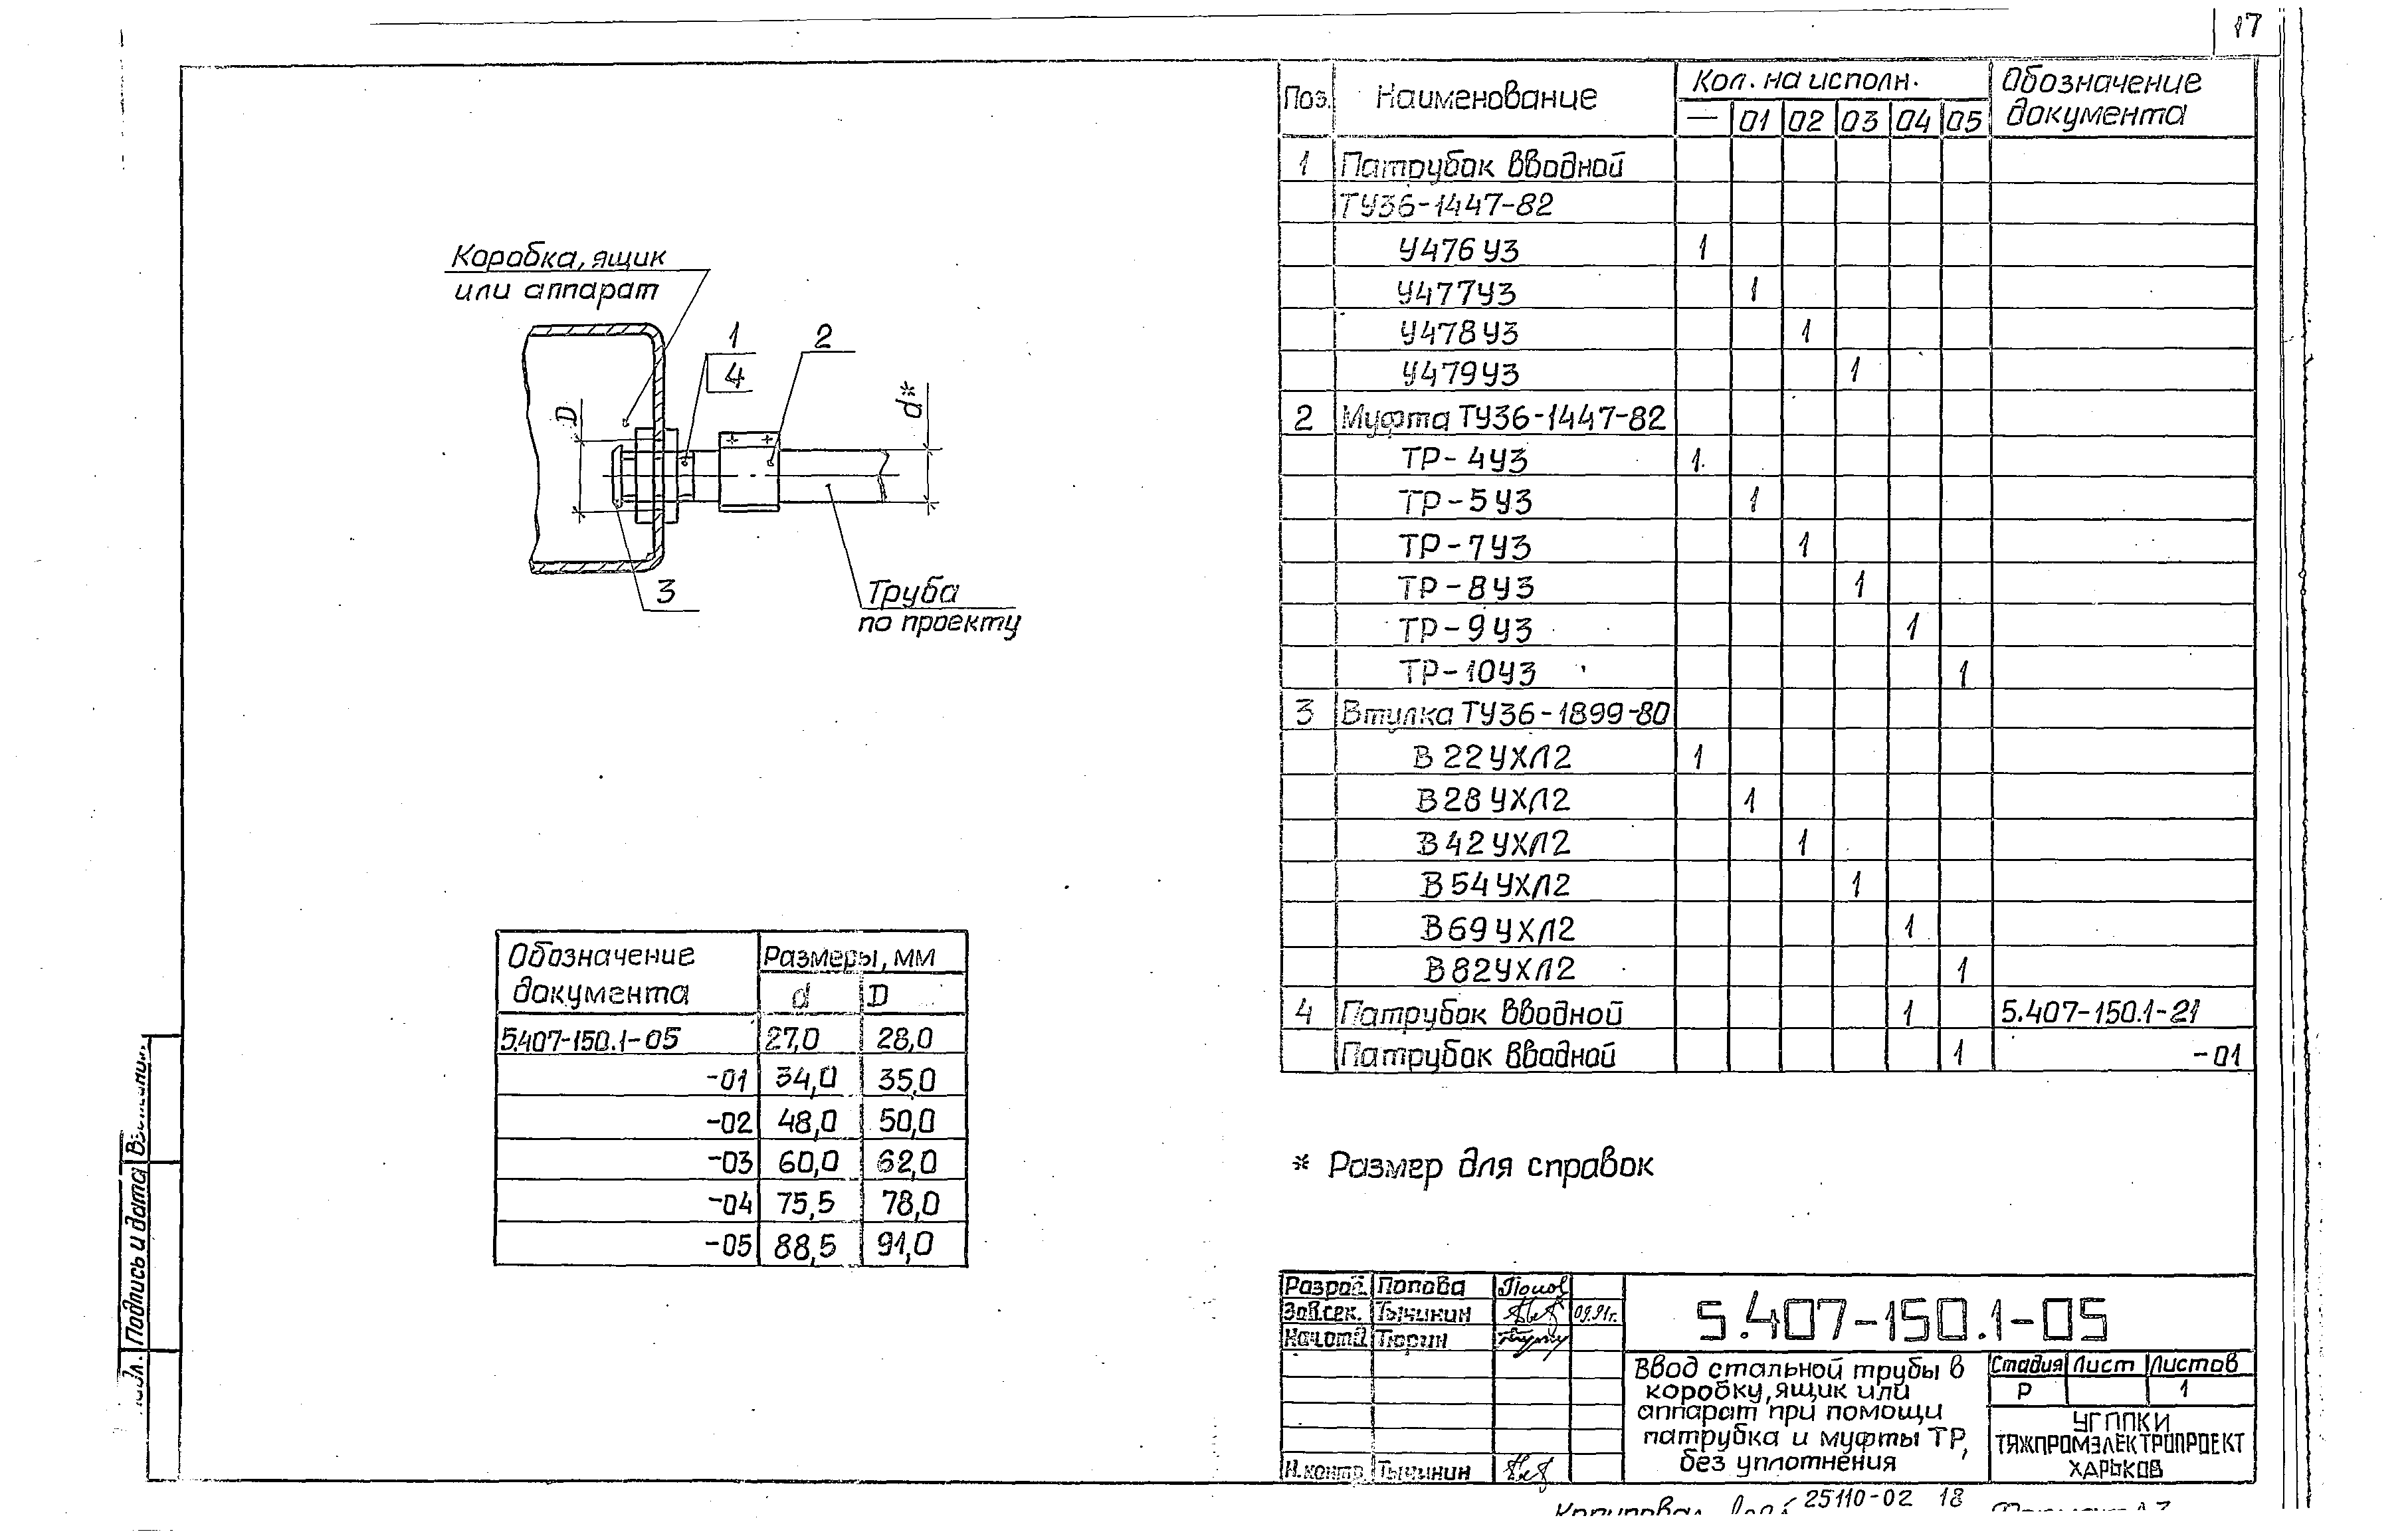 17
Коробка, ящик
или аппарат
1
4
2
d*
D
3
Труба
по проекту
Обозначение документа | Размеры, мм
d | D
5.407-150.1-05 | 27,0 | 28,0
-01 | 34,0 | 35,0
-02 | 48,0 | 50,0
-03 | 60,0 | 62,0
-04 | 75,5 | 78,0
-05 | 88,5 | 91,0
Поз. | Наименование | Кол. на исполн. | Обозначение документа
— | 01 | 02 | 03 | 04 | 05
1 | Патрубок вводной
ТУ36-1447-82
У476 У3 | 1
У477У3 | 1
У478У3 | 1
У479У3 | 1
2 | Муфта ТУ36-1447-82
ТР-4У3 | 1
ТР-5У3 | 1
ТР-7У3 | 1
ТР-8У3 | 1
ТР-9У3 | 1
ТР-10У3 | 1
3 | Втулка ТУ36-1899-80
В22УХЛ2 | 1
В28УХЛ2 | 1
В42УХЛ2 | 1
В54УХЛ2 | 1
В69УХЛ2 | 1
В82УХЛ2 | 1
4 | Патрубок вводной | 1 | 5.407-150.1-21
Патрубок вводной | 1 | -01
* Размер для справок
Разраб. | Попова
Зав.сек. | Тычинин | 09.91г.
Нач.отд. | Тюрин
Н.контр. | Тычинин
5.407-150.1-05
Ввод стальной трубы в
коробку, ящик или
аппарат при помощи
патрубка и муфты ТР,
без уплотнения
Стадия | Лист | Листов
Р | 1
УГППКИ
ТЯЖПРОМЭЛЕКТРОПРОЕКТ
ХАРЬКОВ
Подпись и дата
Копировал
25110-02 18